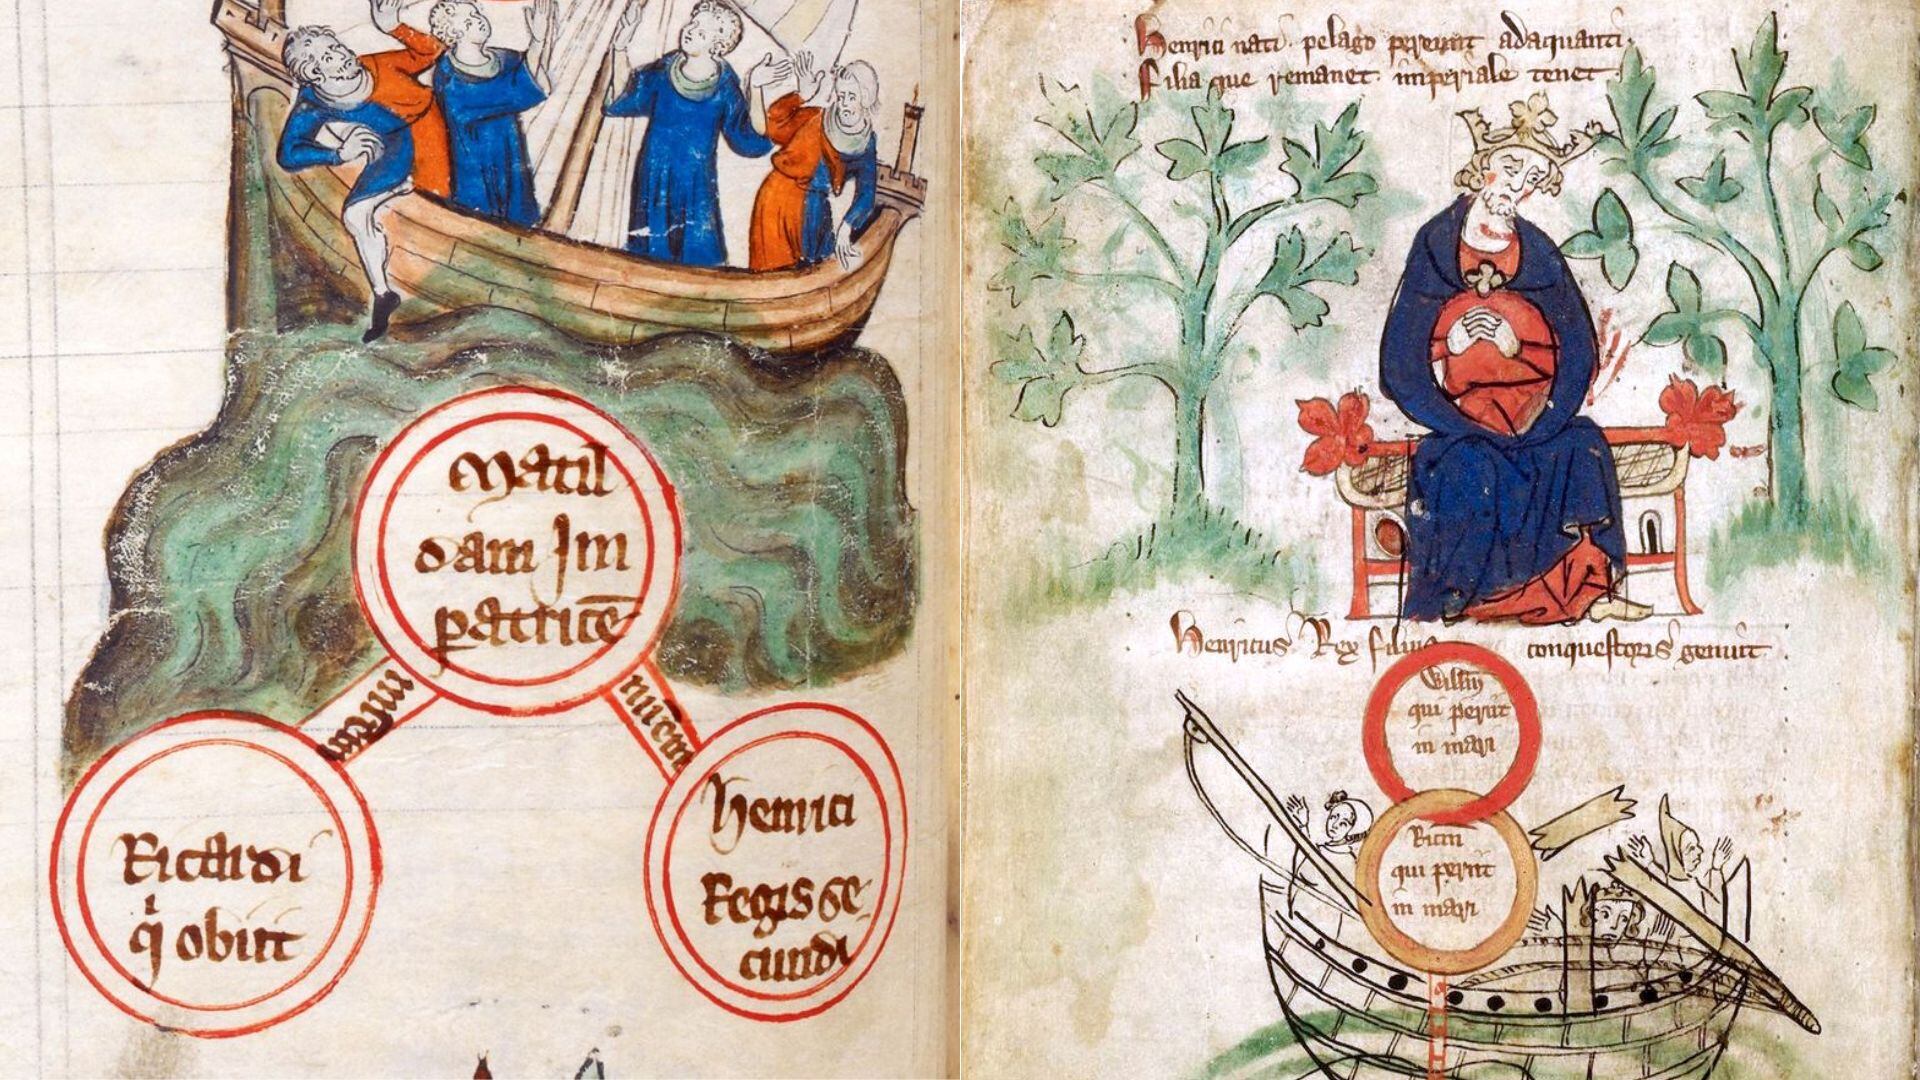 Matil
dam Im
patricē
matrem
matrem
Ricardi
q̇ obiit
Henrici
Regis se
cundi
Henrici nati pelago perierunt adaquanti
Filia que remanet imperiale tenet
Henricus Rex filius conquestoris genuit
Willm̄
qui periit
in mari
Ricm
qui periit
in mari